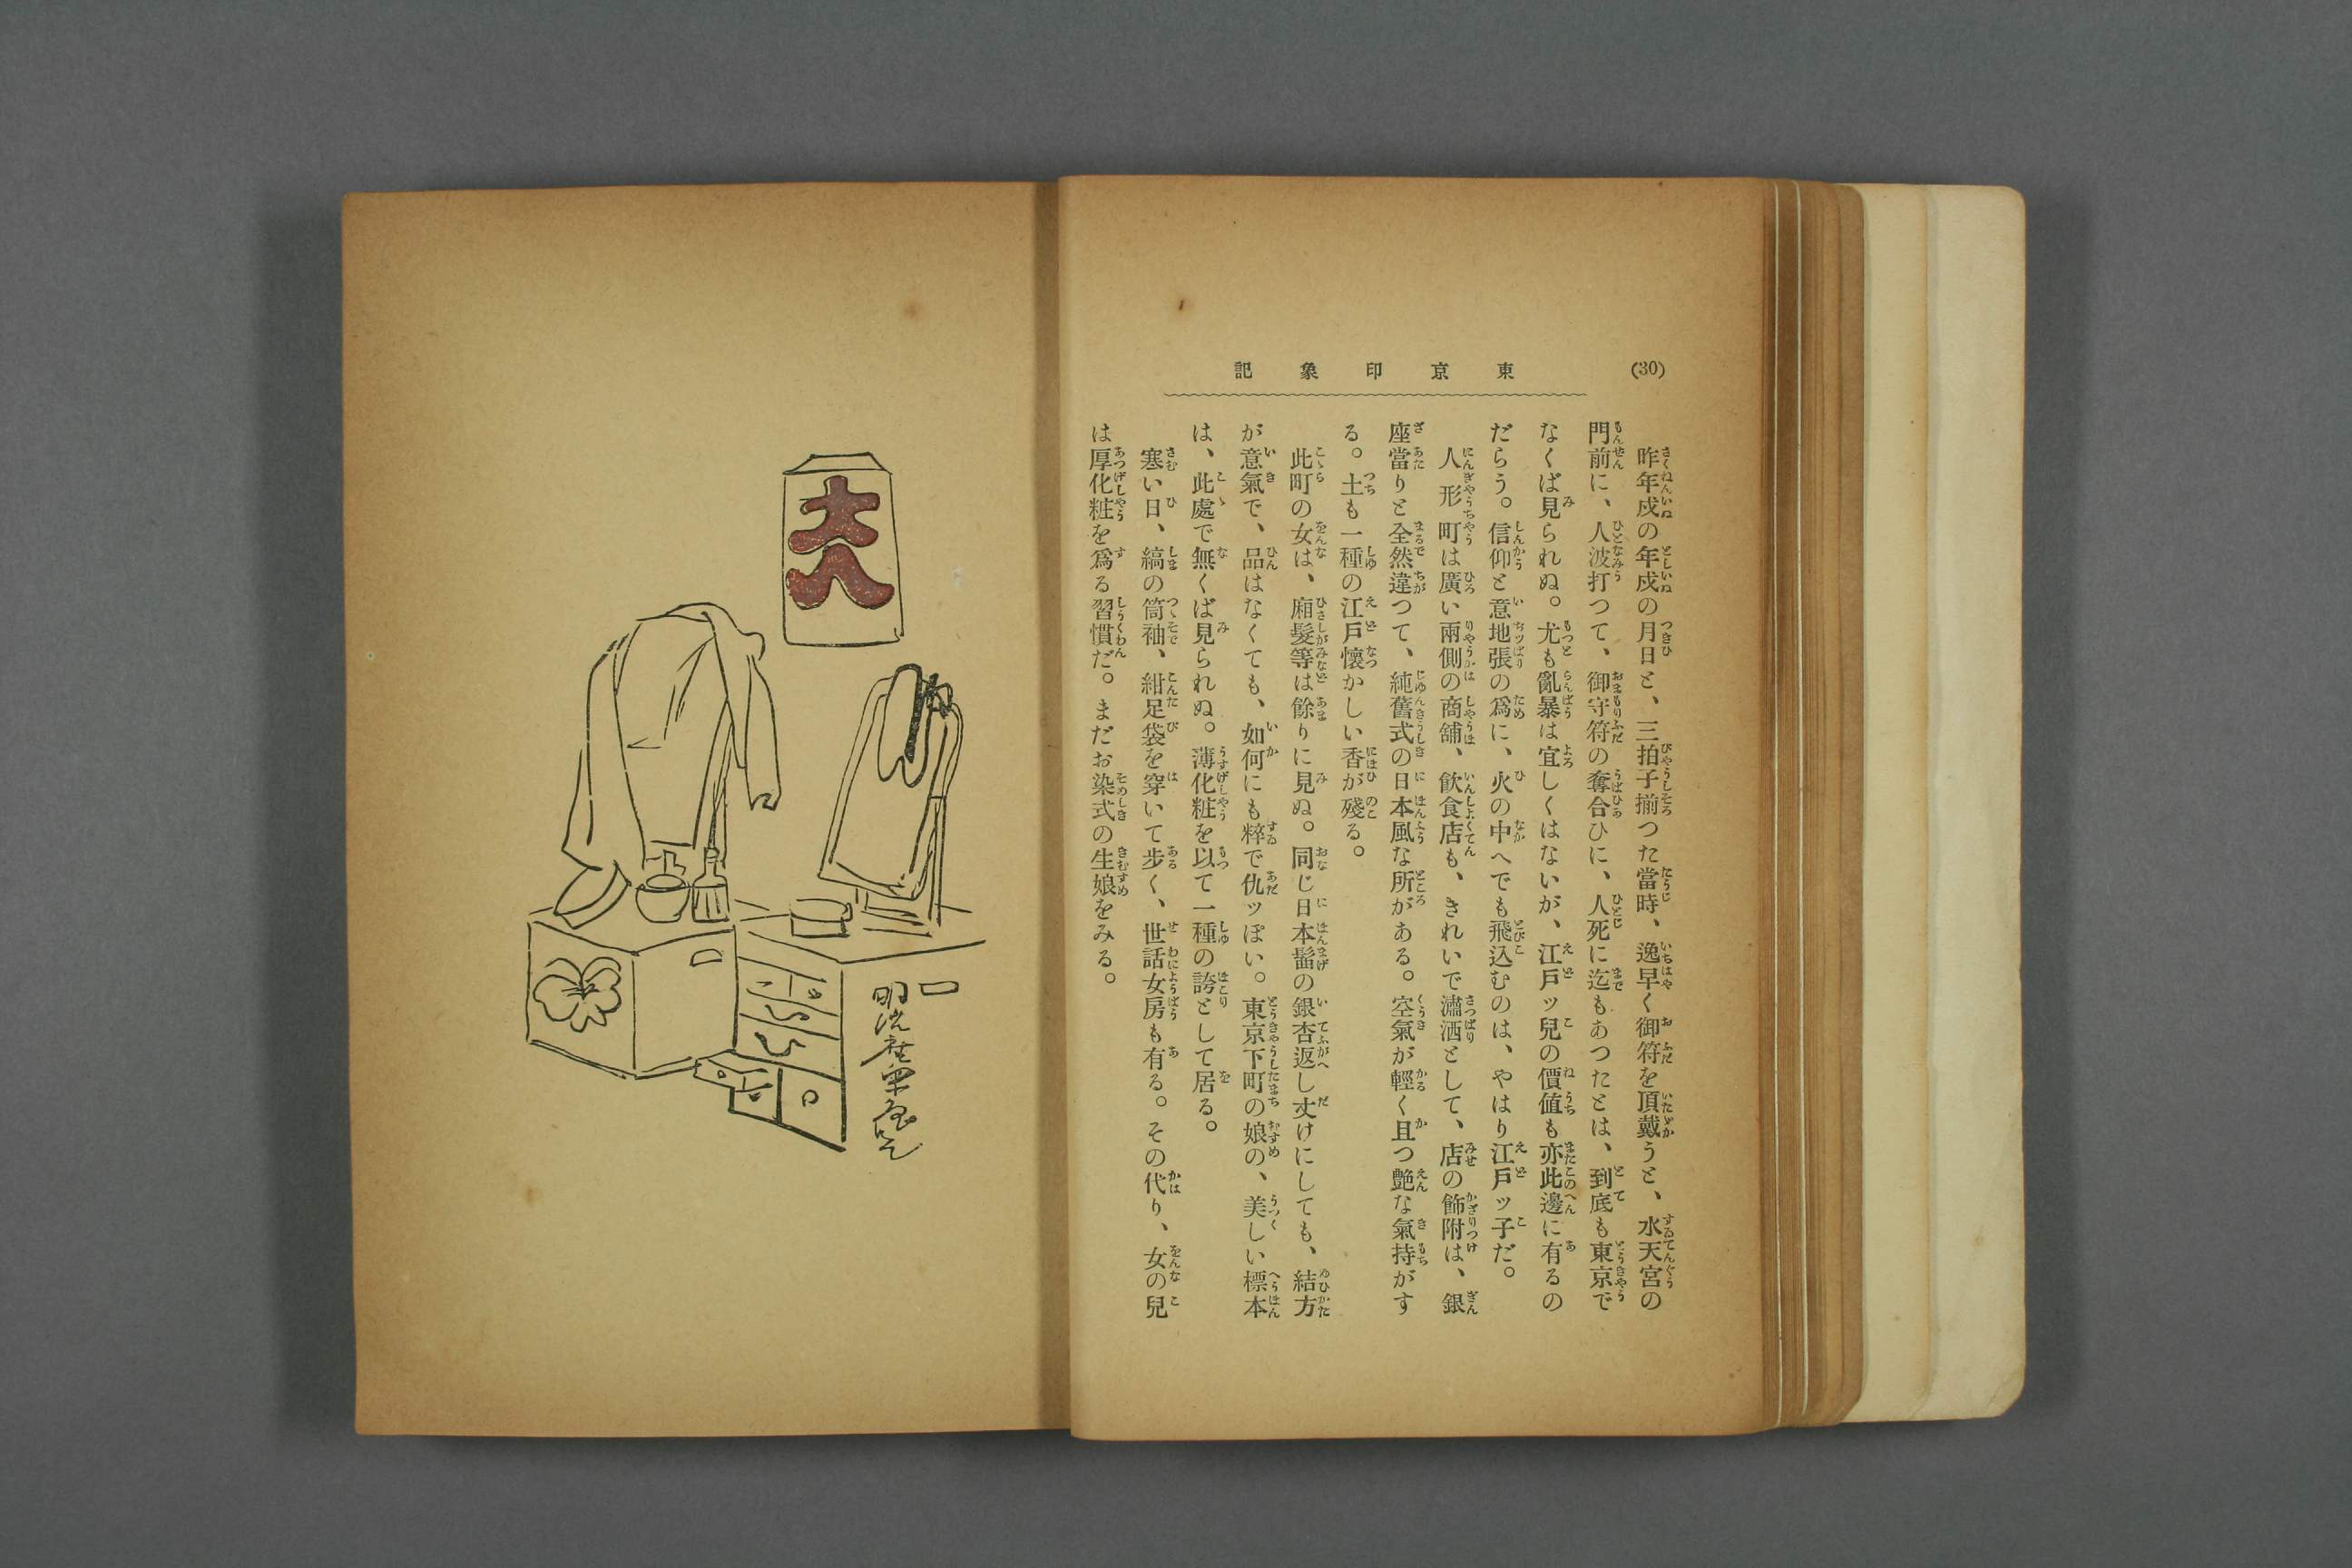 (30)
東京印象記
昨年戌の年戌の月日と、三拍子揃つた當時、逸早く御符を頂戴うと、水天宮の
門前に、人波打つて、御守符の奪合ひに、人死に迄もあつたとは、到底も東京で
なくば見られぬ。尤も亂暴は宜しくはないが、江戸ッ兒の價値も亦此邊に有るの
だらう。信仰と意地張の爲に、火の中へでも飛込むのは、やはり江戸ッ子だ。
人形町は廣い兩側の商舖、飮食店も、きれいで瀟洒として、店の飾附は、銀
座當りと全然違つて、純舊式の日本風な所がある。空氣が輕く且つ艶な氣持がす
る。土も一種の江戸懷かしい香が殘る。
此町の女は、廂髮等は餘りに見ぬ。同じ日本髷の銀杏返し丈けにしても、結方
が意氣で、品はなくても、如何にも粹で仇ッぽい。東京下町の娘の、美しい標本
は、此處で無くば見られぬ。薄化粧を以て一種の誇として居る。
寒い日、縞の筒袖、紺足袋を穿いて歩く、世話女房も有る。その代り、女の兒
は厚化粧を爲る習慣だ。まだお染式の生娘をみる。
大入
明治座樂屋